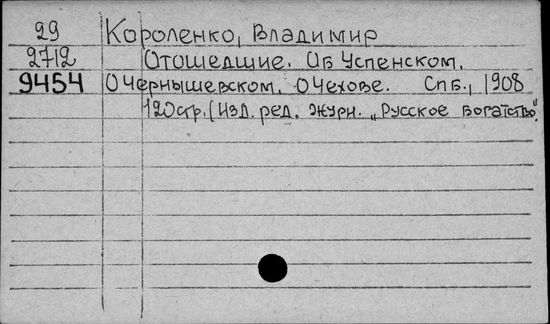 29 Короленко, Владимир
2712 Отошедшие. Об Успенском.
9454 О Чернышевском. О Чехове. Спб., 1908
120 стр. (Изд. ред. журн. „Русское Богатство".